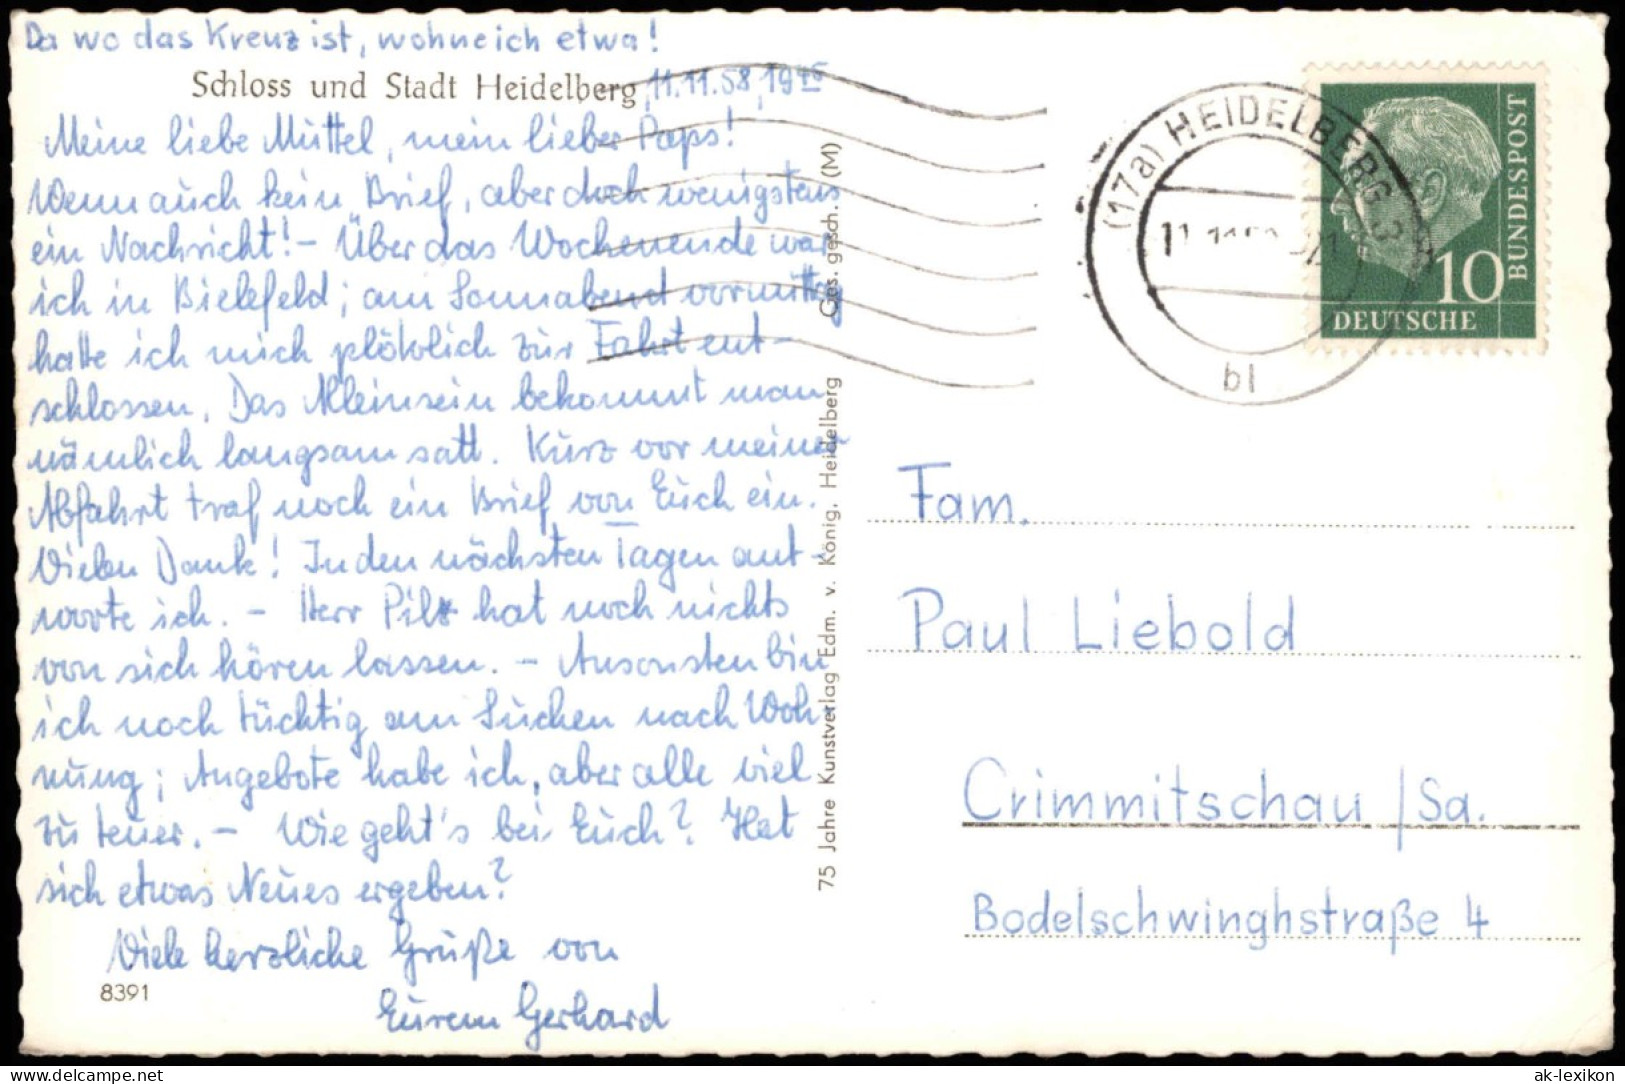 Da wo das Kreuz ist, wohne ich etwa!
Schloss und Stadt Heidelberg, 11.11.58, 19⁴⁵
Meine liebe Muttel, mein lieber Paps!
Wenn auch kein Brief, aber doch wenigstens
ein Nachricht! – Über das Wochenende war
ich in Bielefeld; am Sonnabend vormittag
hatte ich mich plötzlich zur Fahrt ent-
schlossen. Das Alleinsein bekommt man
nämlich langsam satt. Kurz vor meiner
Abfahrt traf noch ein Brief von Euch ein.
Vielen Dank! In den nächsten Tagen ant-
worte ich. – Herr Pilz hat noch nichts
von sich hören lassen. – Ansonsten bin
ich noch tüchtig am Suchen nach Woh-
nung; Angebote habe ich, aber alle viel
zu teuer. – Wie geht's bei Euch? Hat
sich etwas Neues ergeben?
Viele herzliche Grüße von
Eurem Gerhard
8391
75 Jahre Kunstverlag Edm. v. König, Heidelberg Ges. gesch. (M)
(17a) HEIDELBERG 3
bl
10
DEUTSCHE
BUNDESPOST
Fam.
Paul Liebold
Crimmitschau /Sa.
Bodelschwinghstraße 4
ak-lexikon